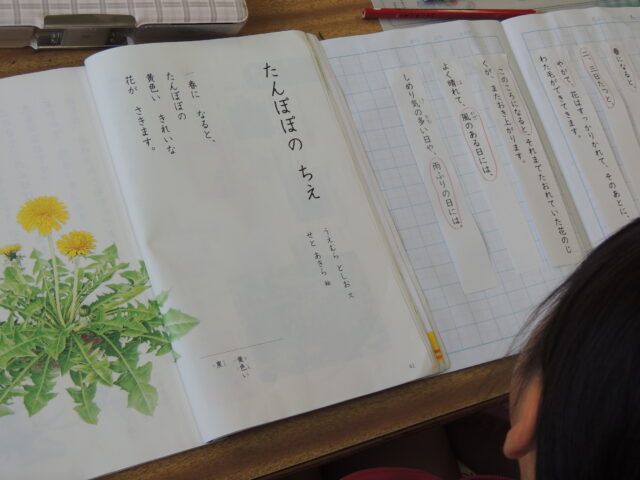 たんぽぽの ちえ
うえむら としお 文
せと あきら 絵
春に なると、
たんぽぽの
黄色い きれいな
花が さきます。
黄色い
41
春になると、
二、三日たつと、
やがて、花はすっかりかれて、そのあとに、
わた毛ができてきます。
このころになると、それまでたおれていた花のじ
くが、またおき上がります。
よく晴れて、風のある日には、
しめり気の多い日や、雨ふりの日には、